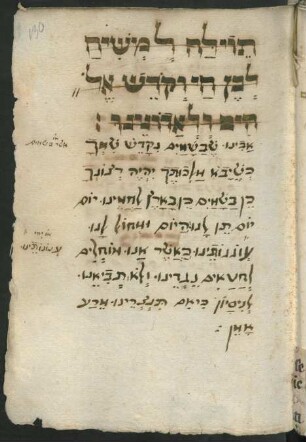 תפילת ל משיח
לבן חי וקדש אל
חיים ולאדונינו :
אבינו שבשמים נקדש שמך
כשיבא מלכותך יהיה רצונך
כן בשמים כן בארץ לחמינו יום
יום תן לנו היום ומחול לנו
עונותינו כאשר אנו מוחלים
לחטאים נגדינו ולא תביאנו
לנסיון כי אם מרע
אמן :
עונותינו